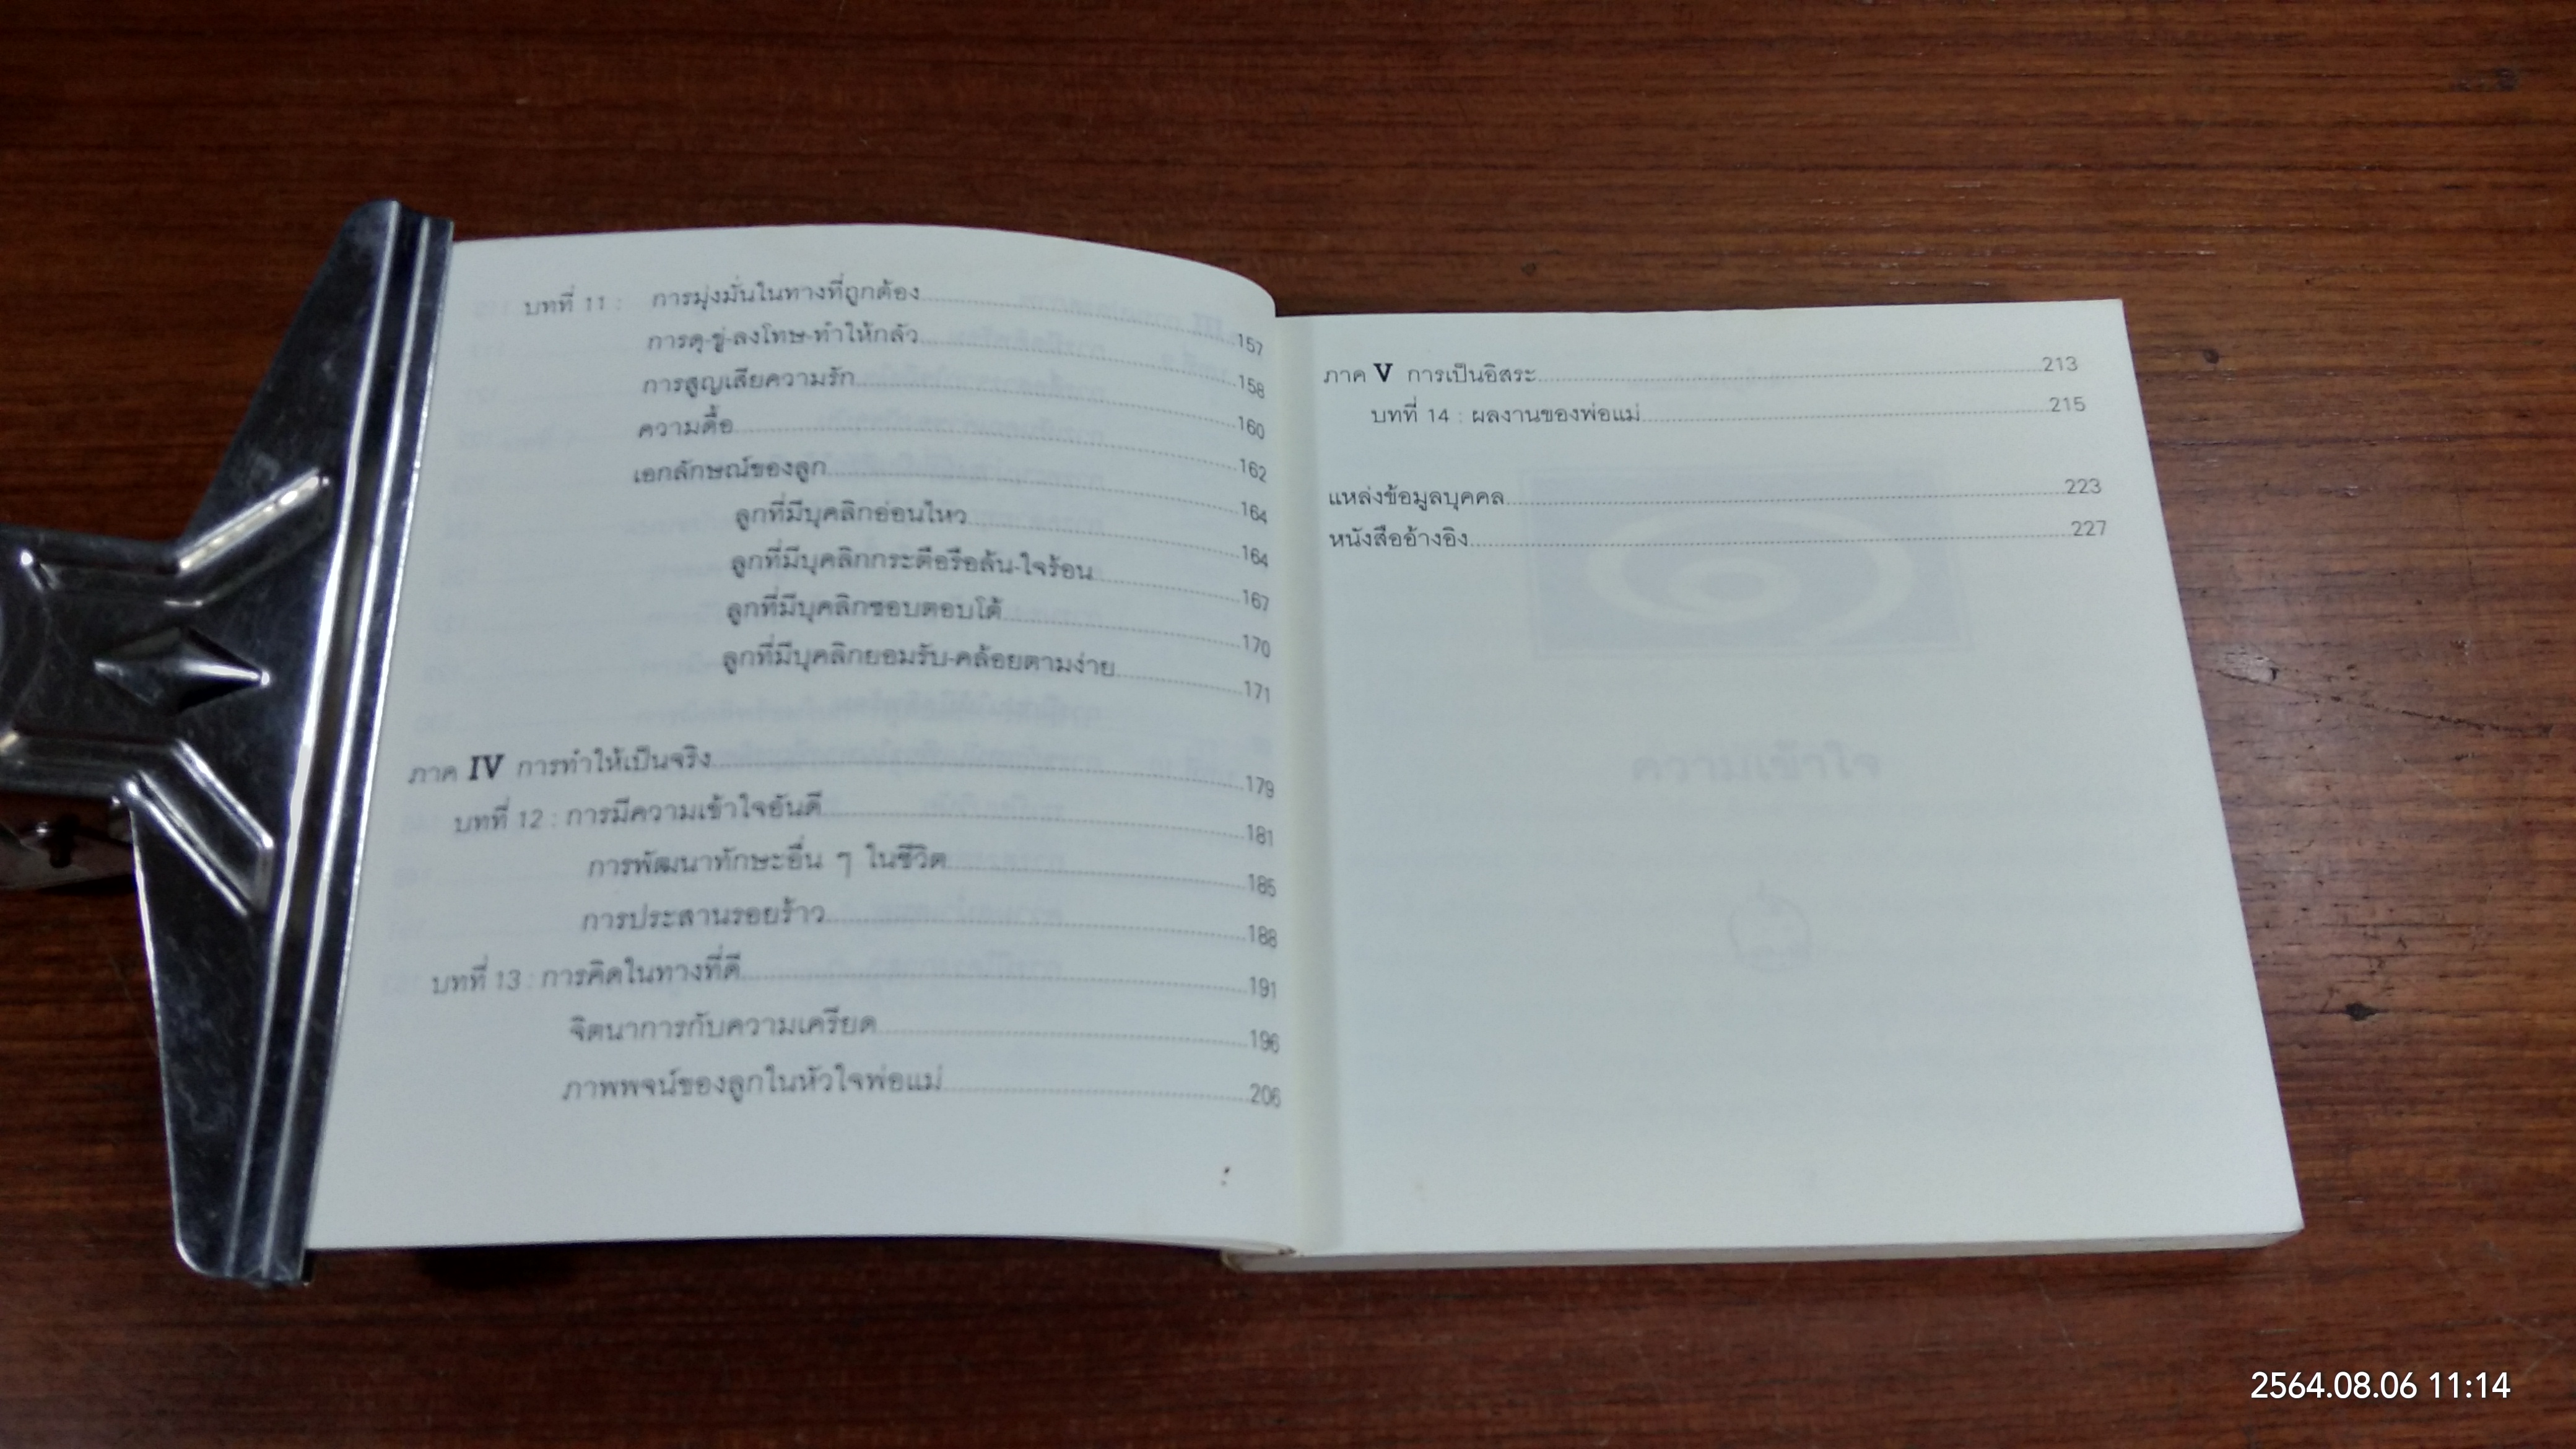 บทที่ 11 : การมุ่งมั่นในทางที่ถูกต้อง 157
การดุ-ขู่-ลงโทษ-ทำให้กลัว 158
การสูญเสียความรัก 160
ความดื้อ 162
เอกลักษณ์ของลูก 164
ลูกที่มีบุคลิกอ่อนไหว 164
ลูกที่มีบุคลิกกระตือรือล้น-ใจร้อน 167
ลูกที่มีบุคลิกชอบตอบโต้ 170
ลูกที่มีบุคลิกยอมรับ-คล้อยตามง่าย 171
ภาค IV การทำให้เป็นจริง 179
บทที่ 12 : การมีความเข้าใจอันดี 181
การพัฒนาทักษะอื่น ๆ ในชีวิต 185
การประสานรอยร้าว 188
บทที่ 13 : การคิดในทางที่ดี 191
จิตนาการกับความเครียด 196
ภาพพจน์ของลูกในหัวใจพ่อแม่ 206
ภาค V การเป็นอิสระ 213
บทที่ 14 : ผลงานของพ่อแม่ 215
แหล่งข้อมูลบุคคล 223
หนังสืออ้างอิง 227
ความเข้าใจ
2564.08.06 11:14